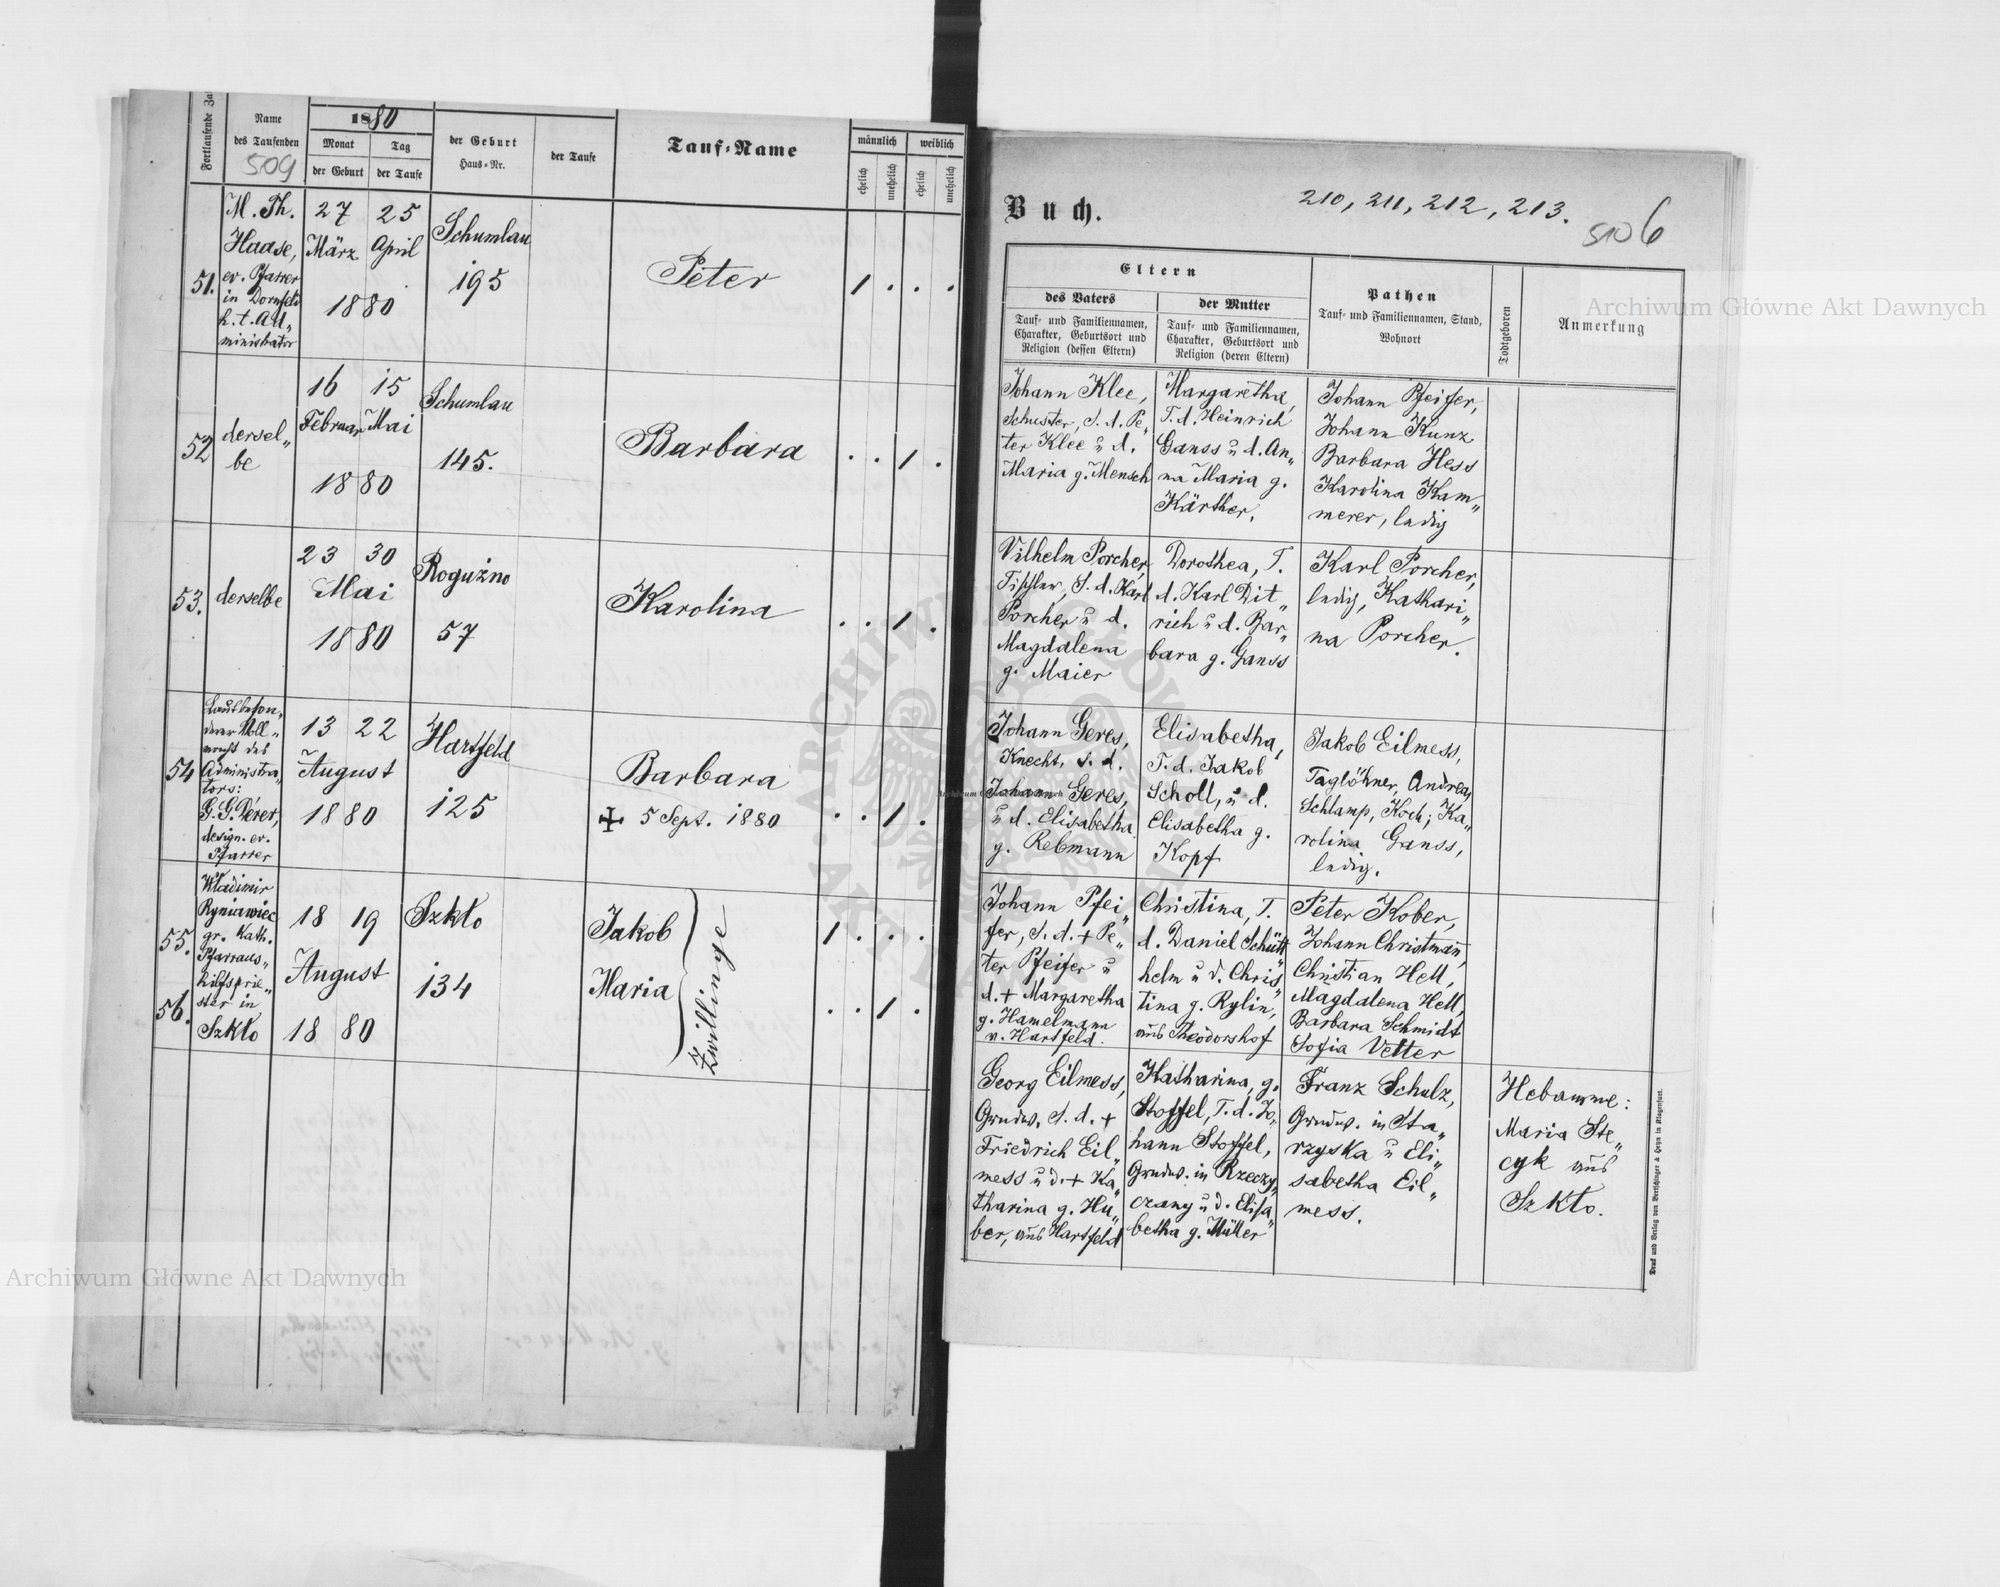 Fortlaufende
Name
des Taufenden
509
1880
Monat
Tag
der Geburt
der Taufe
der Geburt
Haus-Nr.
der Taufe
Tauf-Name
männlich
weiblich
ehelich
unehelich
ehelich
unehelich
51.
M. Th.
Haase,
ev. Pfarrer
in Dornfeld
k. t. Ad„
ministrator
27 25
März April
1880
Schumlau
195
Peter
1 . . .
52
dersel„
be
16 15
Februar Mai
1880
Schumlau
145.
Barbara
. . 1 .
53.
derselbe
23 30
Mai
1880
Rogużno
57
Karolina
. . 1 .
54
Laut beson„
derer Voll„
macht des
Administra„
tors:
G. G. Derer,
design. ev.
Pfarrer
13 22
August
1880
Hartfeld
125
Barbara
✠ 5 Sept. 1880
. . 1 .
55.
56.
Władimir
Ryniawiec
gr. Kath.
Pfarraus„
hilfsprie„
ster in
Szkło
18 19
August
18 80
Szkło
134
Jakob
Maria
Zwillinge
1 . . .
. . 1 .
Buch.
210, 211, 212, 213.
510 6
Eltern
des Vaters
Tauf- und Familiennamen,
Charakter, Geburtsort und
Religion (dessen Eltern)
der Mutter
Tauf- und Familiennamen,
Charakter, Geburtsort und
Religion (deren Eltern)
Pathen
Tauf- und Familiennamen, Stand,
Wohnort
Todtgeboren
Anmerkung
Johann Klee,
Schuster, S. d. Pe„
ter Klee u d.
Maria g. Mensch
Margaretha,
T. d. Heinrich
Ganss u d. An„
na Maria g.
Kärther.
Johann Pfeifer,
Johann Kunz
Barbara Hess
Karolina Kam„
merer, ledig
Vilhelm Porcher,
Tischler, S. d. Karl
Porcher u d.
Magdalena
g. Maier
Dorothea, T.
d. Karl Dit„
rich u d. Bar„
bara g. Ganss
Karl Porcher,
ledig, Kathari„
na Porcher.
Johann Geres,
Knecht, S. d.
Johann Geres,
u d. Elisabetha
g. Rebmann
Elisabetha,
T. d. Jakob
Scholl, u d.
Elisabetha g.
Kopf
Jakob Eilmess,
Taglöhner, Andreas
Schlamp, Koch; Ka„
rolina Ganss,
ledig.
Johann Pfei„
fer, S. d. + Pe„
ter Pfeifer u
d. + Margaretha
g. Hamelmann
v. Hartfeld.
Christina, T.
d. Daniel Schütt„
helm u d. Chris„
tina g. Rylin,
aus Theodorshof
Peter Kober,
Johann Christmañ,
Christian Hell,
Magdalena Hell,
Barbara Schmidt
Sofia Vetter
Georg Eilmess,
Grundw. S. d. +
Friedrich Eil„
mess u d. + Ka„
tharina g. Hu„
ber, aus Hartfeld
Katharina, g.
Stoffel, T. d. Jo„
hann Stoffel,
Grundw. in Rzeczy„
czany u d. Elisa„
betha g. Müller
Franz Schulz,
Grundw. in Sta„
rzyska u Eli„
sabetha Eil„
mess.
Hebamme:
Maria Ste„
cyk aus
Szkło.
Druck und Verlag von Bertschinger & Heyn in Klagenfurt.
Archiwum Główne Akt Dawnych
Archiwum Główne Akt Dawnych